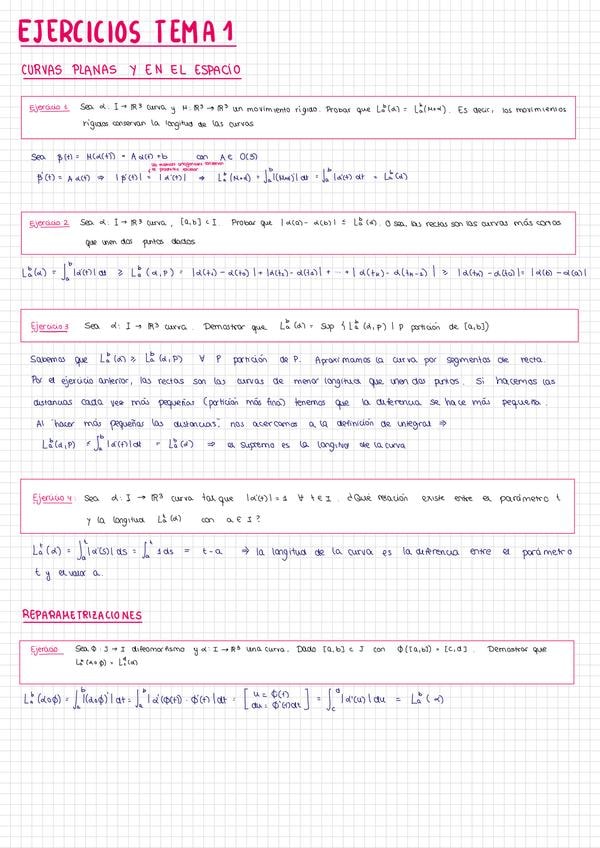 EJERCICIOS TEMA 1
CURVAS PLANAS Y EN EL ESPACIO
Ejercicio 1 Sea α: I → ℝ³ curva y M: ℝ³ → ℝ³ un movimiento rígido. Probar que Lₐᵇ(α) = Lₐᵇ(M∘α). Es decir, los movimientos
rígidos conservan la longitud de las curvas
Sea β(t) = M(α(t)) = Aα(t)+b con A ∈ O(3)
las matrices ortogonales conservan
el producto escalar
β'(t) = Aα'(t) ⇒ |β'(t)| = |α'(t)| ⇒ Lₐᵇ(M∘α) = ∫ₐᵇ|(M∘α)'| dt = ∫ₐᵇ |α'(t)| dt = Lₐᵇ(α)
Ejercicio 2 Sea α: I → ℝ³ curva, [a,b] ⊂ I. Probar que |α(a) - α(b)| ≤ Lₐᵇ(α). O sea, las rectas son las curvas más cortas
que unen dos puntos dados
Lₐᵇ(α) = ∫ₐᵇ |α'(t)| dt ≥ Lₐᵇ(α,P) = |α(t₁) - α(t₀)| + |α(t₂) - α(t₁)| + ... + |α(tₙ) - α(tₙ₋₁)| ≥ |α(tₙ) - α(t₀)| = |α(b) - α(a)|
Ejercicio 3 Sea α: I → ℝ³ curva. Demostrar que Lₐᵇ(α) = sup { Lₐᵇ(α,P) | P partición de [a,b]}
Sabemos que Lₐᵇ(α) ≥ Lₐᵇ(α,P) ∀ P partición de P. Aproximamos la curva por segmentos de recta.
Por el ejercicio anterior, las rectas son las curvas de menor longitud que unen dos puntos. Si hacemos las
distancias cada vez más pequeñas (partición más fina) tenemos que la diferencia se hace más pequeña.
Al "hacer más pequeñas las distancias", nos acercamos a la definición de integral ⇒
Lₐᵇ(α,P) ≤ ∫ₐᵇ |α'(t)| dt = Lₐᵇ(α) ⇒ el supremo es la longitud de la curva
Ejercicio 4: Sea α: I → ℝ³ curva tal que |α'(t)| = 1 ∀ t ∈ I. ¿Qué relación existe entre el parámetro t
y la longitud Lₐᵗ(α) con a ∈ I?
Lₐᵗ(α) = ∫ₐᵗ |α'(s)| ds = ∫ₐᵗ 1 ds = t - a ⇒ la longitud de la curva es la diferencia entre el parámetro
t y el valor a.
REPARAMETRIZACIONES
Ejercicio Sea Φ: J → I difeomorfismo y α: I → ℝ³ una curva. Dado [a,b] ⊂ J con Φ([a,b]) = [c,d]. Demostrar que
Lₐᵇ(α∘Φ) = L_c^d(α)
Lₐᵇ(α∘Φ) = ∫ₐᵇ |(α∘Φ)'| dt = ∫ₐᵇ |α'(Φ(t)) · Φ'(t)| dt = [u = Φ(t) du = Φ'(t)dt] = ∫_c^d |α'(u)| du = Lₐᵇ(α)